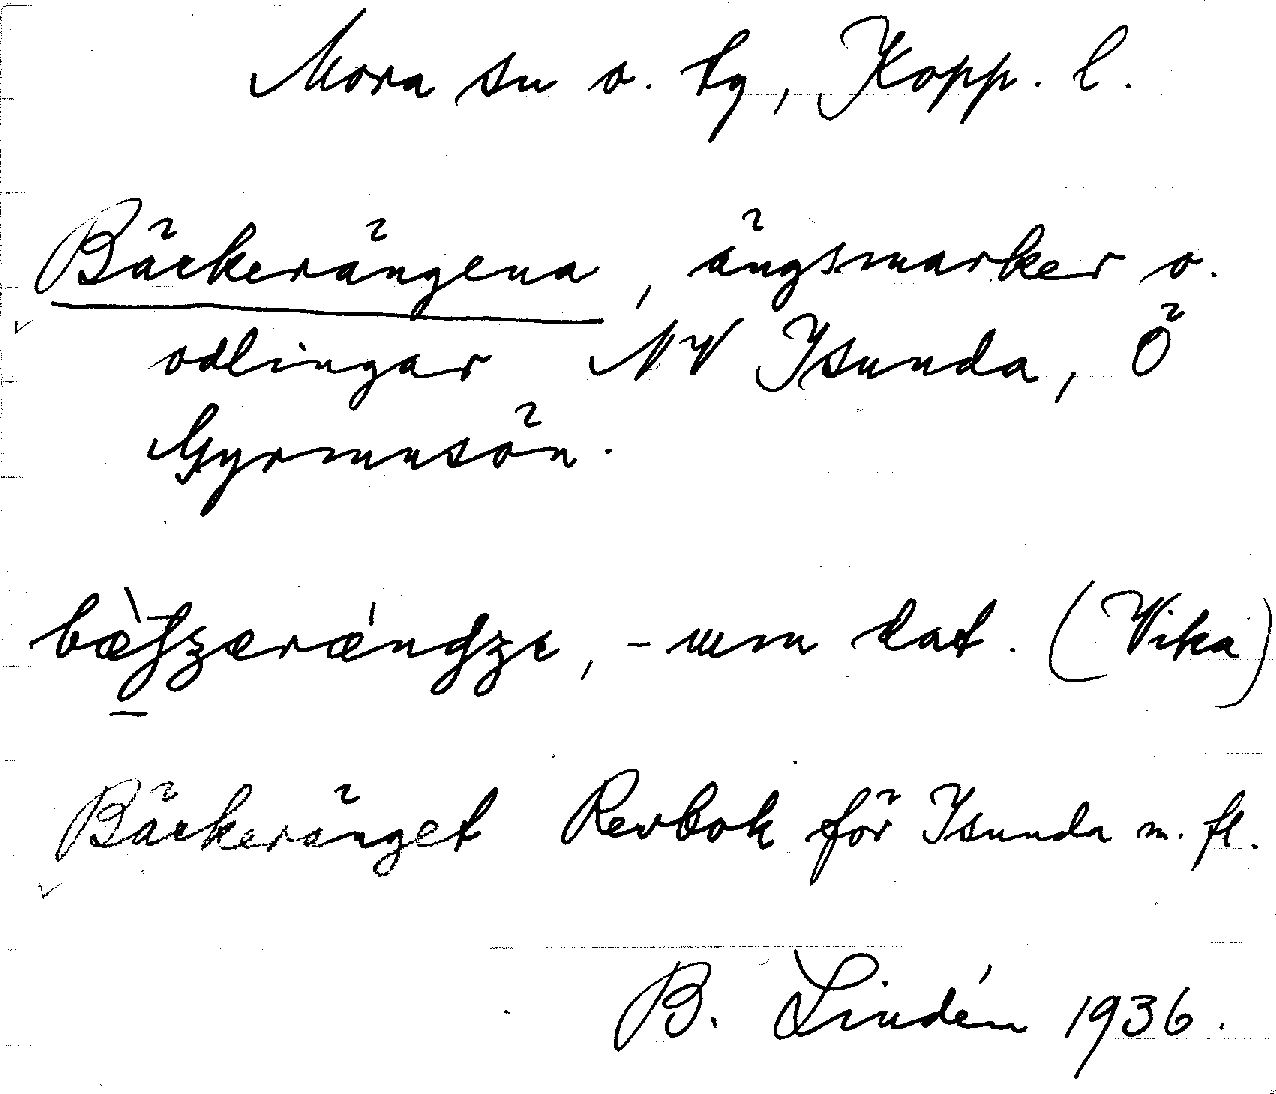 Mora sn o. tg, Kopp. l.
Bäckerängena, ängsmarker o.
odlingar NV Isunda, Ö
Gyrmusön.
-um dat. (Vika)
Bäckeränget Revbok för Isunda m. fl.
B. Lindén 1936.